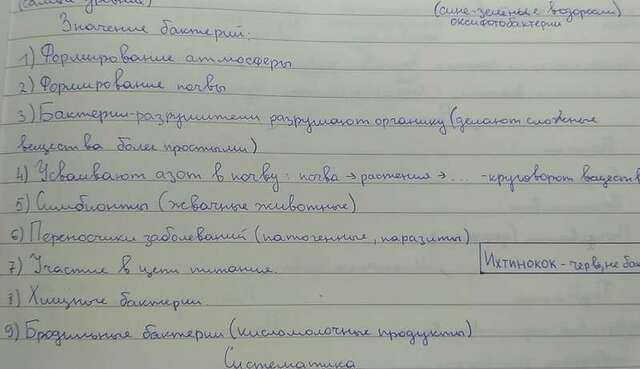 (сине-зелёные водоросли)
оксифотобактерии
Значение бактерий:
1) Формирование атмосферы
2) Формирование почвы
3) Бактерии-разрушители разрушают органику (делают сложные
вещества более простыми)
4) Усваивают азот в почву: почва → растения → ... -круговорот веществ
5) Симбионты (жвачные животные)
6) Переносчики заболеваний (патогенные, паразиты)
7) Участие в цепи питания.
Ихтинокок - червь, не ба
8) Хищные бактерии
9) Бродильные бактерии (кисломолочные продукты)
Систематика